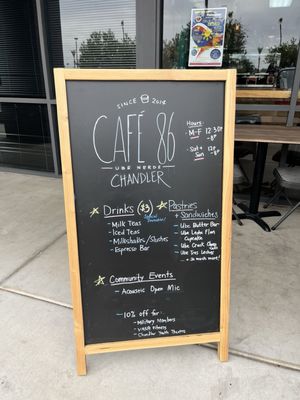 SINCE 2014
CAFÉ 86
UBE NERDS
CHANDLER
Hours:
M-F 12:30
-8P
Sat +
Sun
12P
-8P
Drinks ($3)
- Milk Teas
- Iced Teas
- Milkshakes/Slushes
- Espresso Bar
Pastries
+ Sandwiches
- Ube Butter Bar
- Ube Leche Flan
Cupcake
- Ube Tres Leches
- + so much more!
Community Events
- Acoustic Open Mic
- 10% off for:
- Military Members
- Fitness
- Chandler Youth Theatre